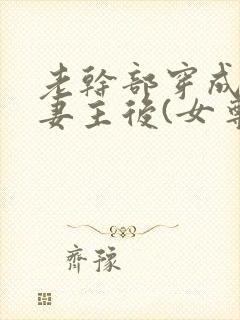 老幹部穿成
妻主後(女尊
齊豫